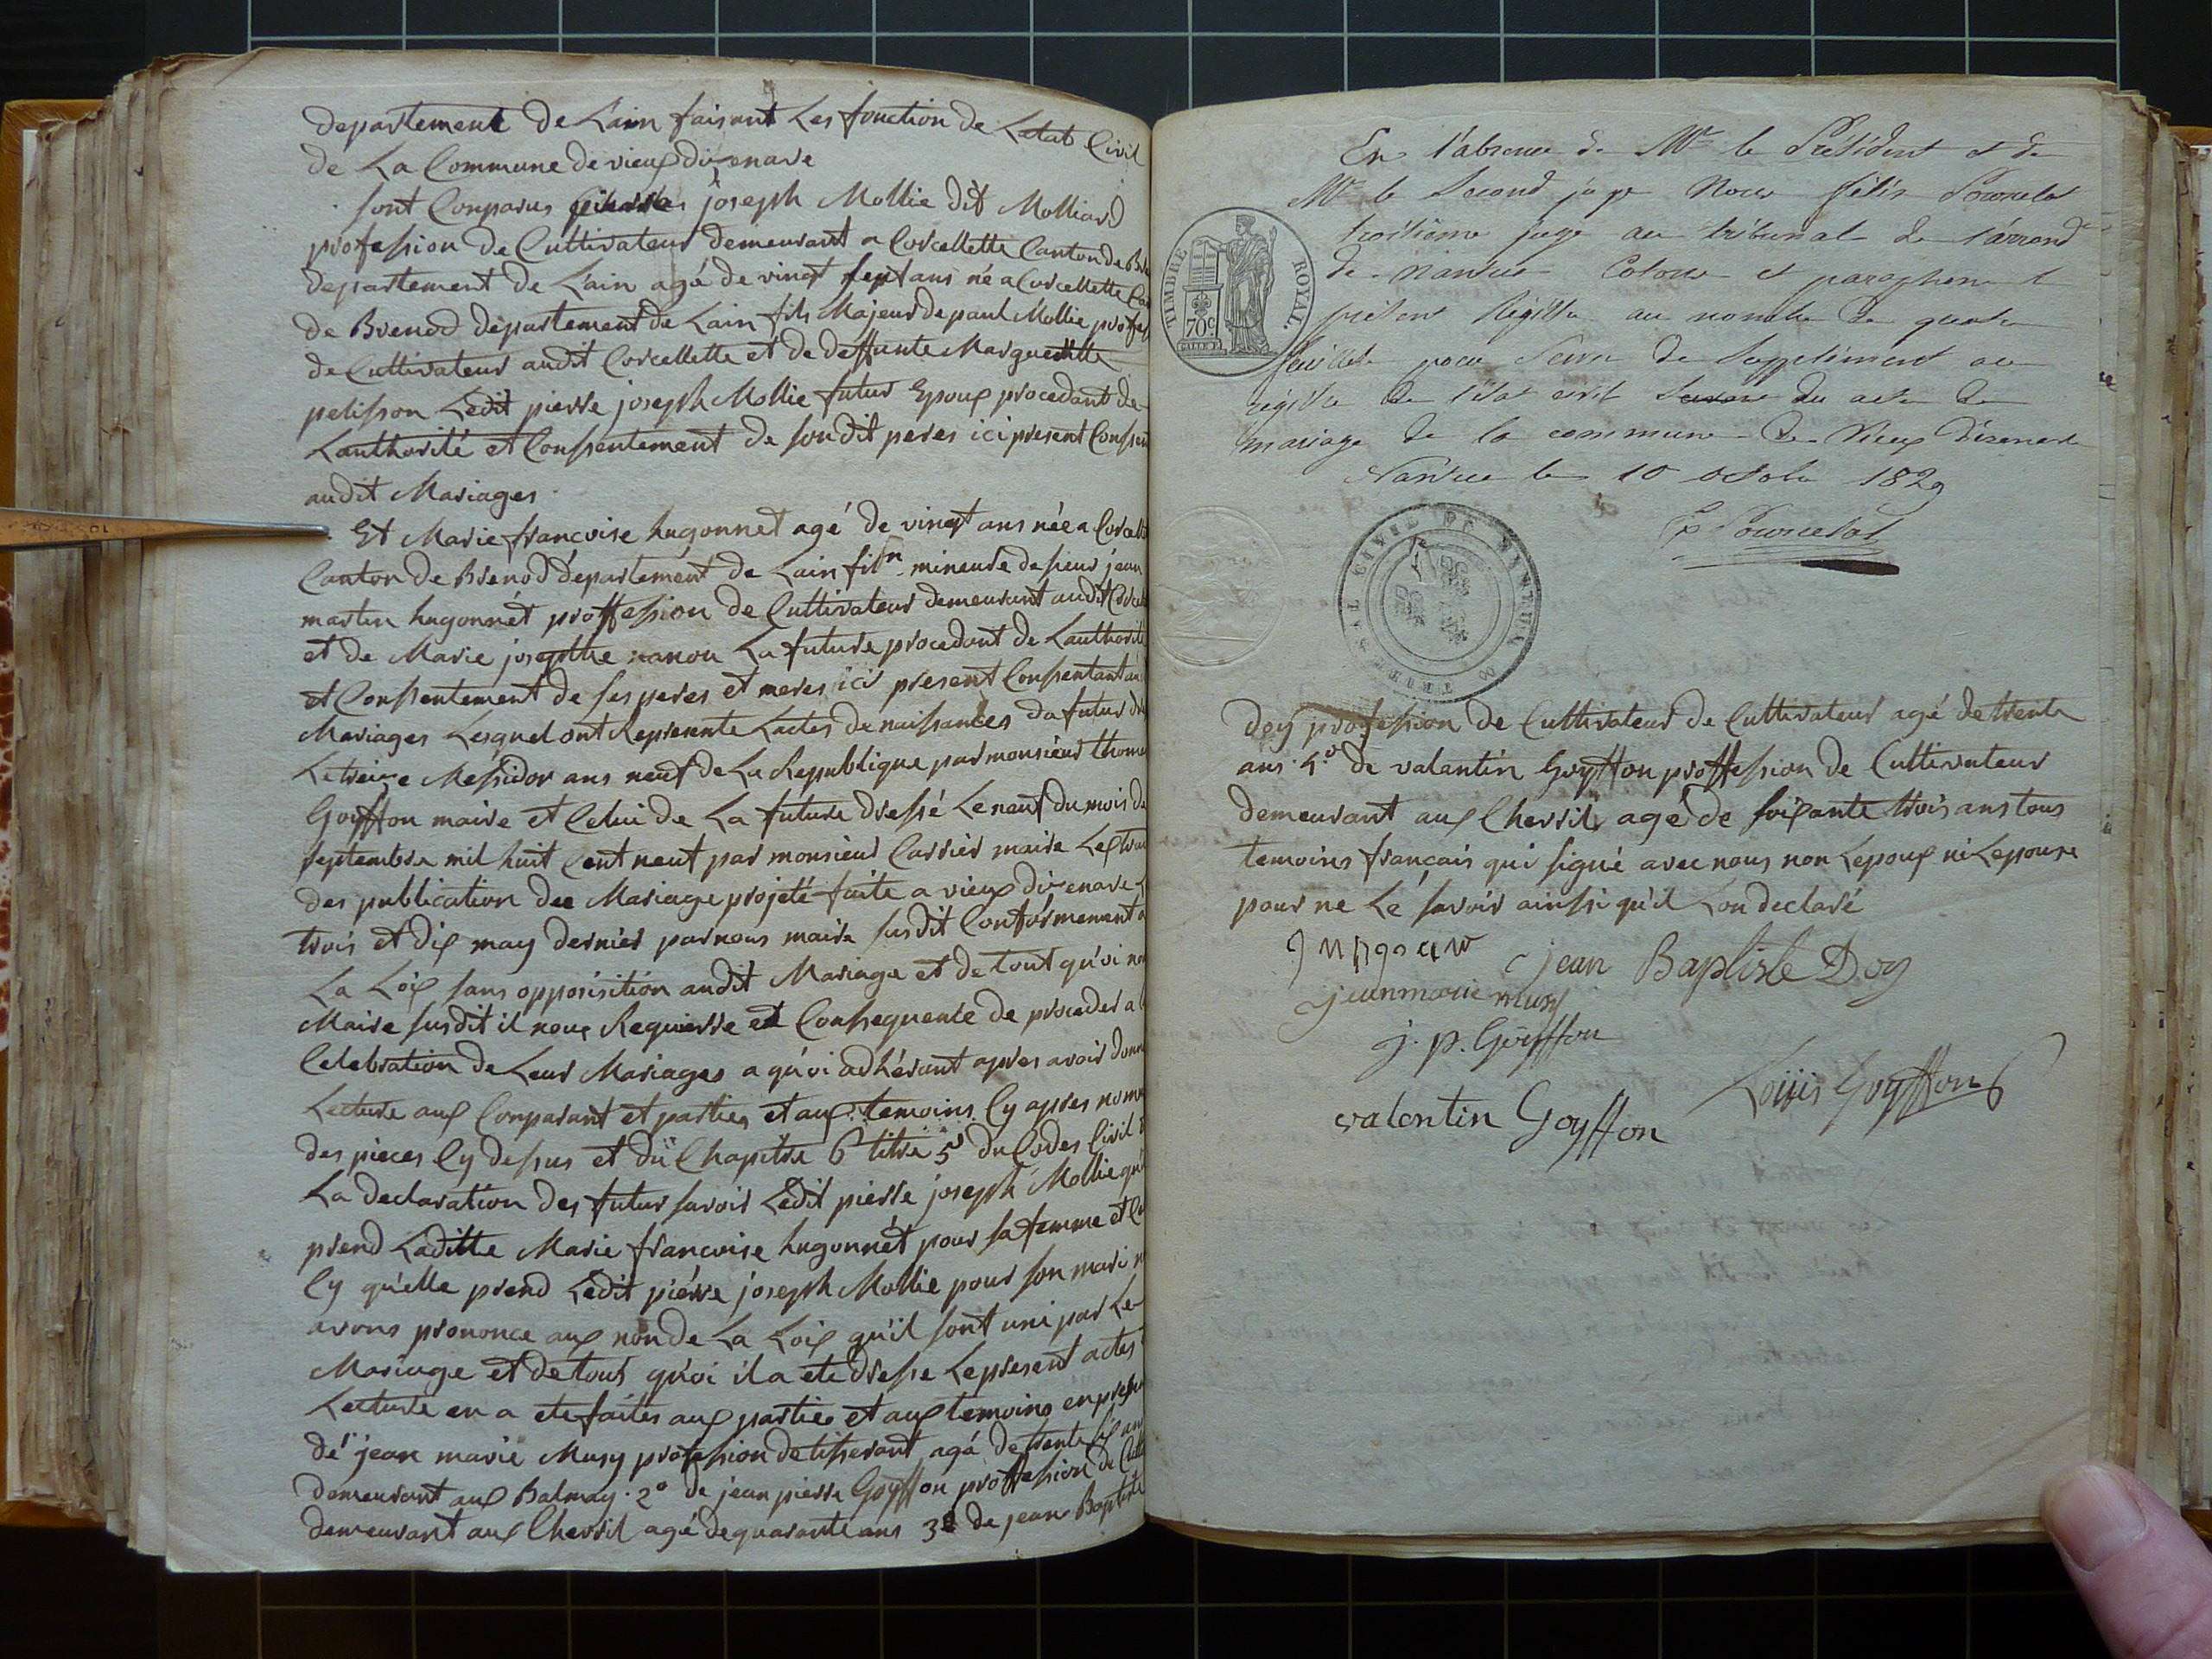 departement de Lain faisant Les fonction de Letat Civil
de La Commune de vieux dizenave
sont Conparus pierre joseph Mollie dit Molliard
profession de Cultivateur demeurant a Corcellette Canton de
departement de Lain agé de vingt sept ans né a Corcellette
de Brenod departement de Lain fils Majeur de paul Mollie
de Cultivateur audit Corcellette et de deffunte Margueritte
pelisson Ledit pierre joseph Mollie futur Epoux procedant de
Lauthorité et Conssentement de sondit peres ici present
audit Mariages
Et Marie francoise hugonnet agé de vingt ans née a
Canton de Brenod departement de Lain fille mineure de sieur jean
martin hugonnet proffession de Cultivateur demeurant audit
et de Marie josepthe nanon La future procedant de Lauthorité
et Conssentement de ses peres et meres ici present Conssentant au
Mariages Lesquel ont Represente Lactes de naissances du futur
Le treize Messidor ans neuf de La Republique par monsieur
Goyffon maire et Celui de La future dressé Le neuf du mois de
septembre mil huit Cent neuf par monsieur Carrier maire
des publication dee Mariage projeté faite a vieux dizenave
trois et dix may dernier par nous maire susdit Conformement a
La Loix sans opposisition audit Mariage et de tout qu'oi
Maire susdit il nous Requierre et Conssequence de proceder a
Celebration de Leur Mariages a qu'oi adhérant apres avoir
Lecture aux Conparant et parties et aux temoins Cy apres
des pieces Cy dessus et du Chapitre 6 titre 5 du Codes Civil
La declaration des futur savoir Ledit pierre joseph Mollie
prend Laditte Marie francoise hugonnét pour sa femme et
Cy qu'elle prend Ledit piérre joseph Mollie pour son mari
avons prononce aux non de La Loix qu'il sont uni par Le
Mariage et de tout qu'oi il a ete dresse Le present actes
Lecture en a ete faites aux parties et aux temoins
de jean marie Musy profession de tisserant agé de trente six
demeurant aux Balmay. 2º de jean pierre Goyffon proffession de
demeurant aux Chevril agé de quarante ans 3º de jean Baptiste
En l'absence de Mr le Président et de
Mr le Second juge Nous félix Pourcelot
troisième juge au tribunal de l'arrond
de Nantua Cotons et paraphons le
présent Régistre au nombre de quatre
feuillets pour Servir de Supplément au
régistre de l'état civil des actes de
mariage de la commune de Vieux d'izenave
Nantua le 10 octobre 1829
Pourcelot
TIMBRE ROYAL.
70c
TRIBUNAL CIVIL DE NANTUA
Doy profession de Cultivateur de Cultivateur agé de trente
ans 4º de valantin Goyffon proffession de Cultivateur
demeurant aux Chevril agé de soixante trois ans tous
temoins français qui signé avec nous non Lepoux ni Lepouse
pour ne Le savoir ainssi qu'il Lon declaré
jean Baptiste Doy
jean marie musy
j. p. Goÿffon
Loüis Goyffon
valentin Goyffon